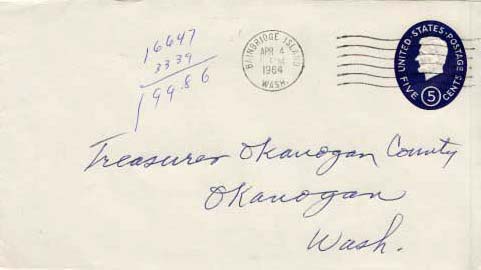 16647
3339
19986
BAINBRIDGE ISLAND
APR 4
1964
WASH.
UNITED STATES POSTAGE
FIVE 5 CENTS
Treasurer Okanogan County
Okanogan
Wash.